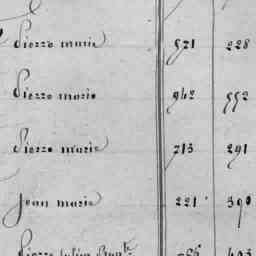 Pierre marie 571 228
Pierre marie 942 552
Pierre marie 213 291
Jean marie 221 390
Pierre julien